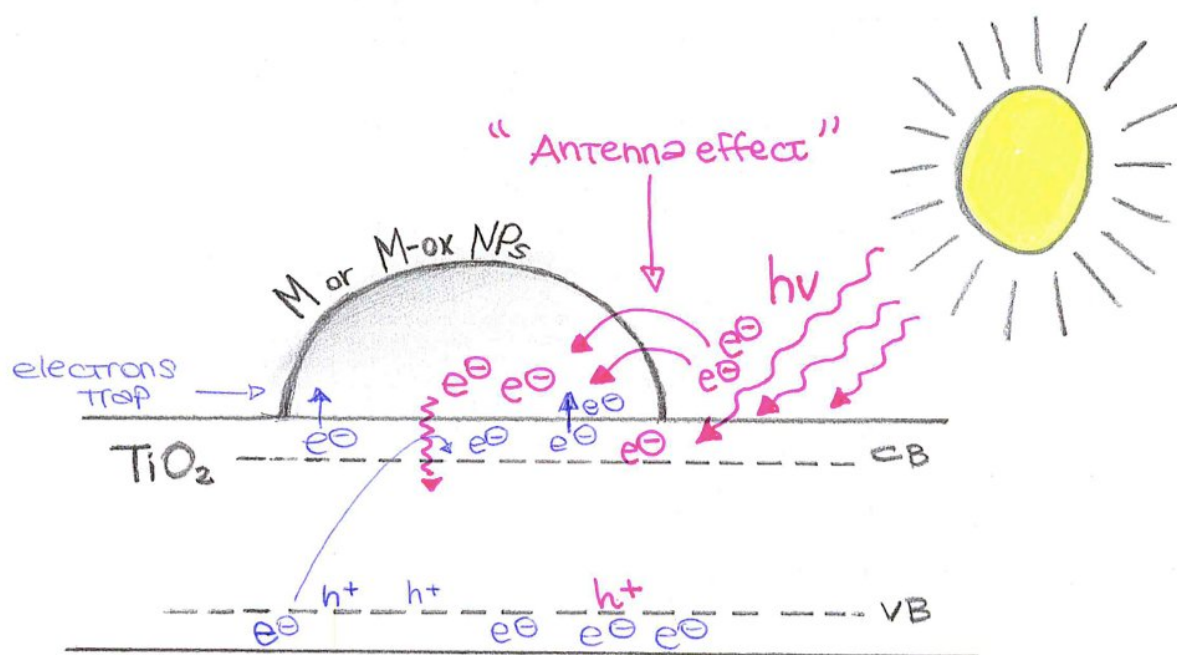 “ Antenna effect ”
M or M-ox NPs
hν
e⊖
e⊖
electrons
trap
e⊖ e⊖
e⊖
e⊖ e⊖ e⊖ e⊖
TiO₂
CB
h⁺ h⁺ h⁺
VB
e⊖ e⊖ e⊖ e⊖